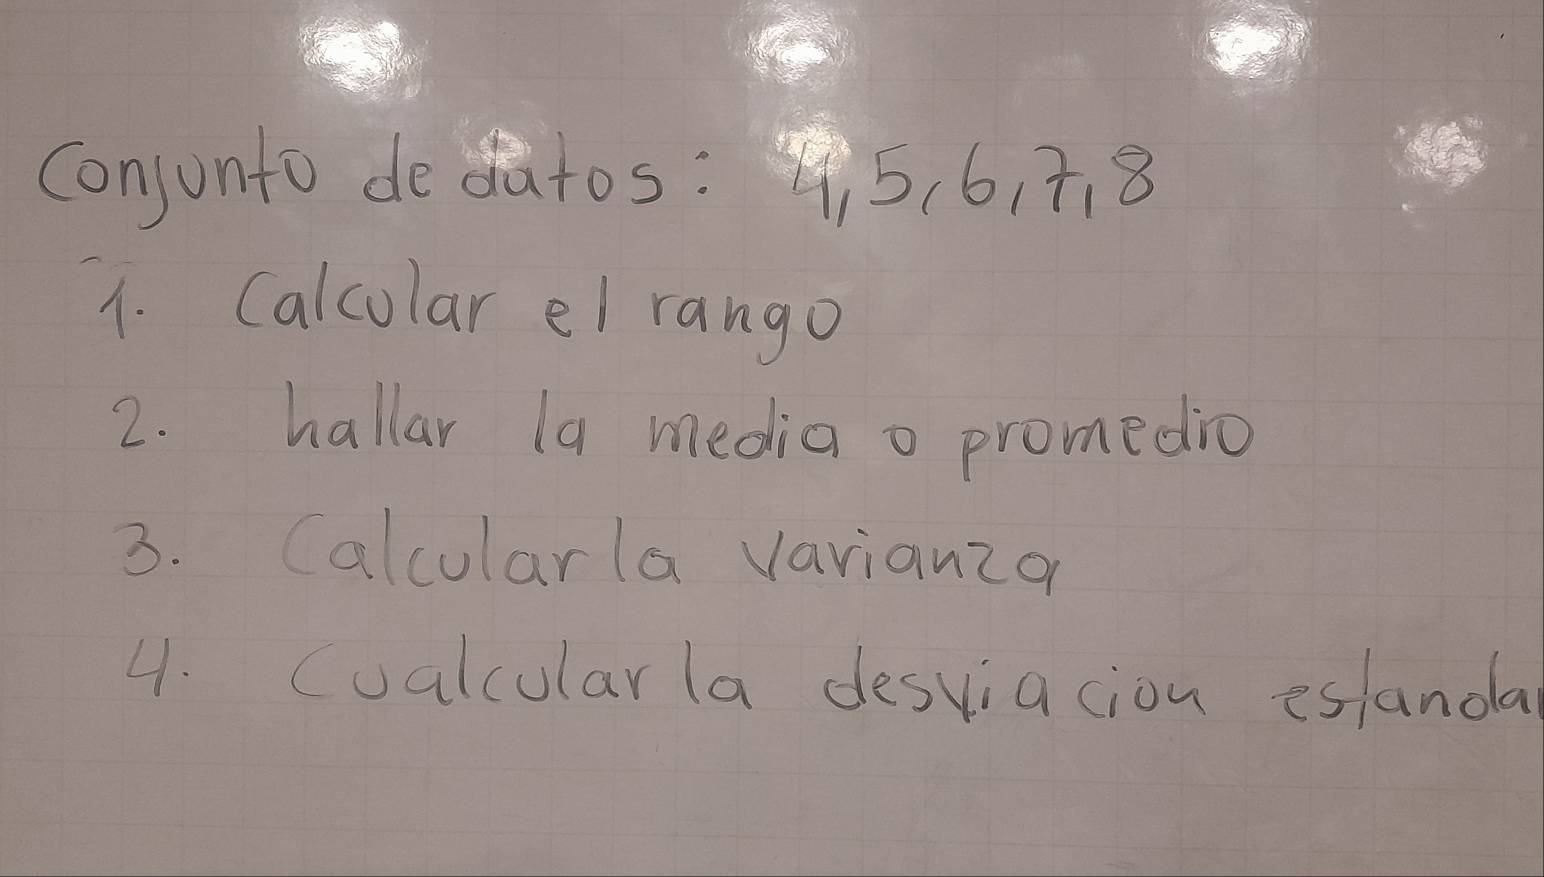 Conjunto de datos: 4, 5, 6, 7, 8
1. Calcular el rango
2. hallar la media o promedio
3. Calcular la varianza
4. Cualcular la desviacion estandar